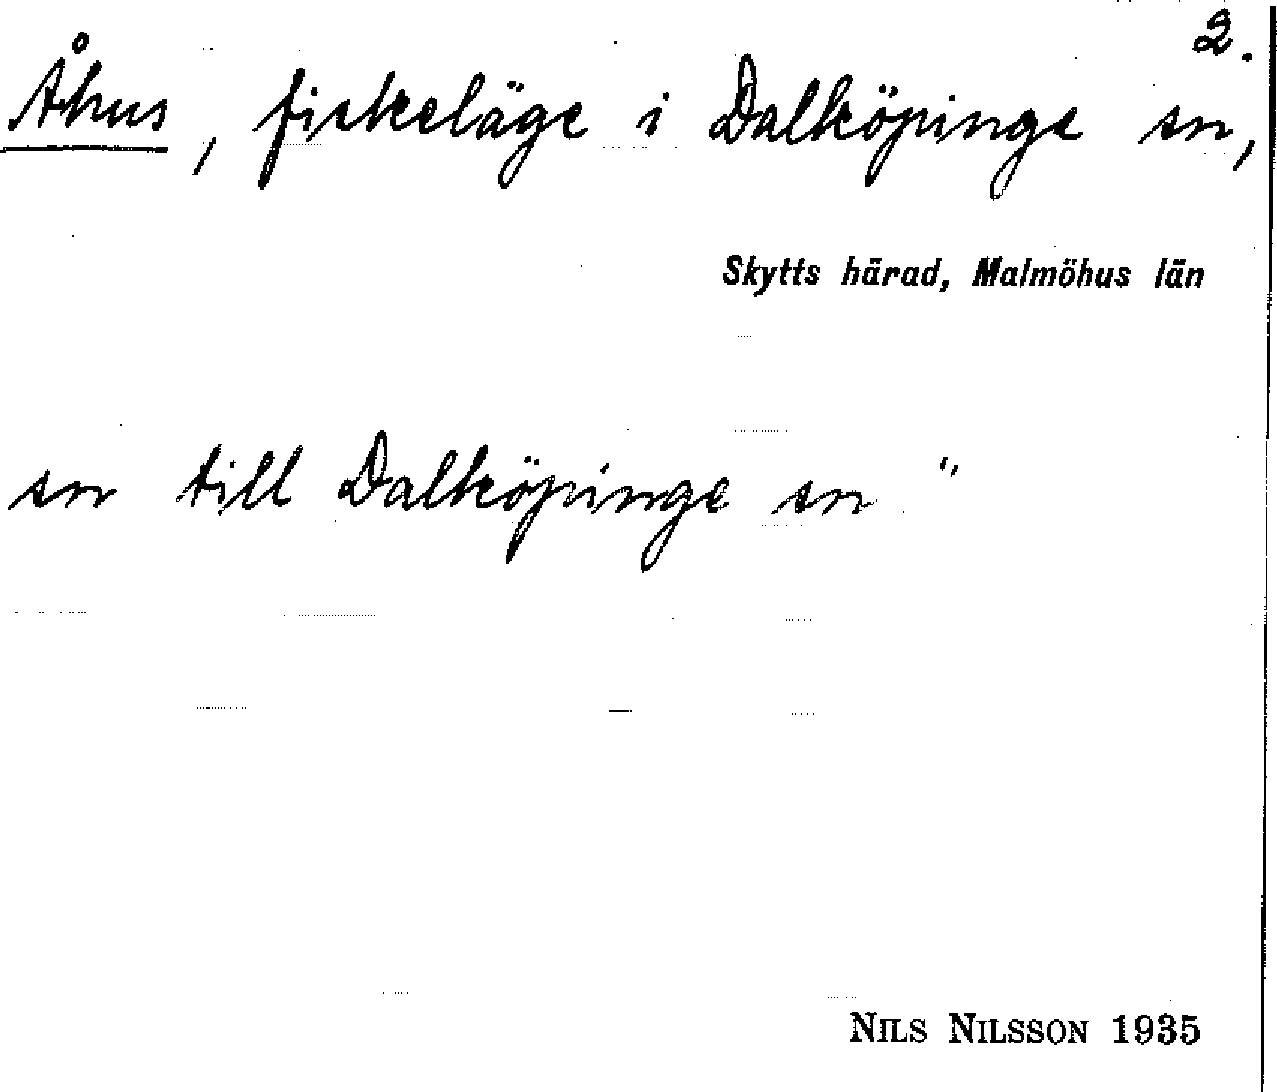 2.
Åhus, fiskeläge i Dalköpinge sn,
Skytts härad, Malmöhus län
sn till Dalköpinge sn "
NILS NILSSON 1935